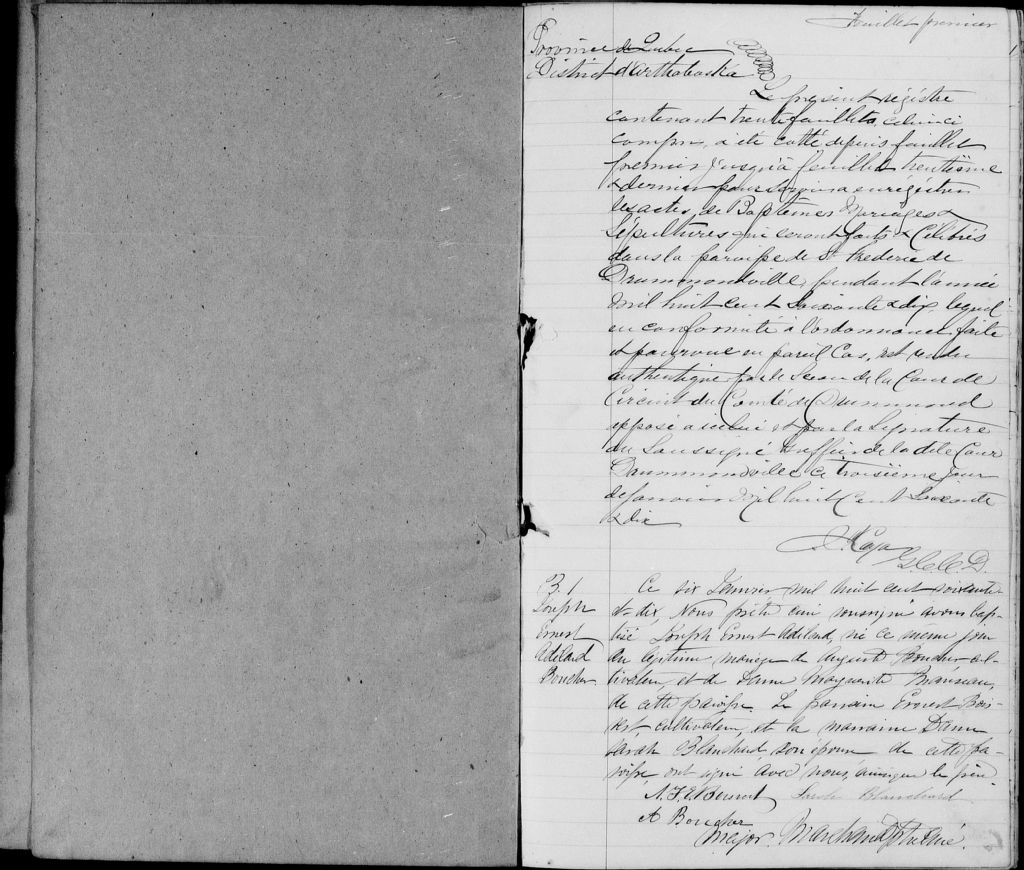 Feuillet premier
1
Province de Quebec
District d'Arthabaska
Le présent régistre
contenant trente feuillets, celui ci
compris, a été cotté depuis feuillet
premier jusqu'à feuillet trentième
& dernier pour servir à enrégistrer
les actes de Baptêmes Mariages &
Sépultures qui seront faits & Célébrés
dans la paroisse de St Frederic de
Drummondville, pendant l'année
mil huit cent Soixante & dix, lequel
en conformité à l'ordonnance faite
et pourvue en pareil Cas, est rendu
authentique par le Sceau de la Cour de
Circuit du Comté de Drummond
apposé a icelui et par la Signature
du Soussigné Greffier de la dite Cour
Drummondville ce troisième jour
de Janvier Mil huit Cent Soixante
& dix
G.C.C.D.
B. 1
Joseph
Ernest
Adélard
Boucher
Ce six Janvier mil huit cent soixante
& dix, Nous prêtre curé soussigné avons bap-
tisé Joseph Ernest Adélard, né ce même jour
du légitime mariage de August Boucher cul-
tivateur, et de Dame Marguerite
de cette paroisse. Le parrain Ernest Bois-
vert, cultivateur, et la marraine Dame
Sarah Blanchard son épouse de cette pa-
roisse, ont signé avec nous, ainsique le père
Sarah Blanchard
A Boucher
Major